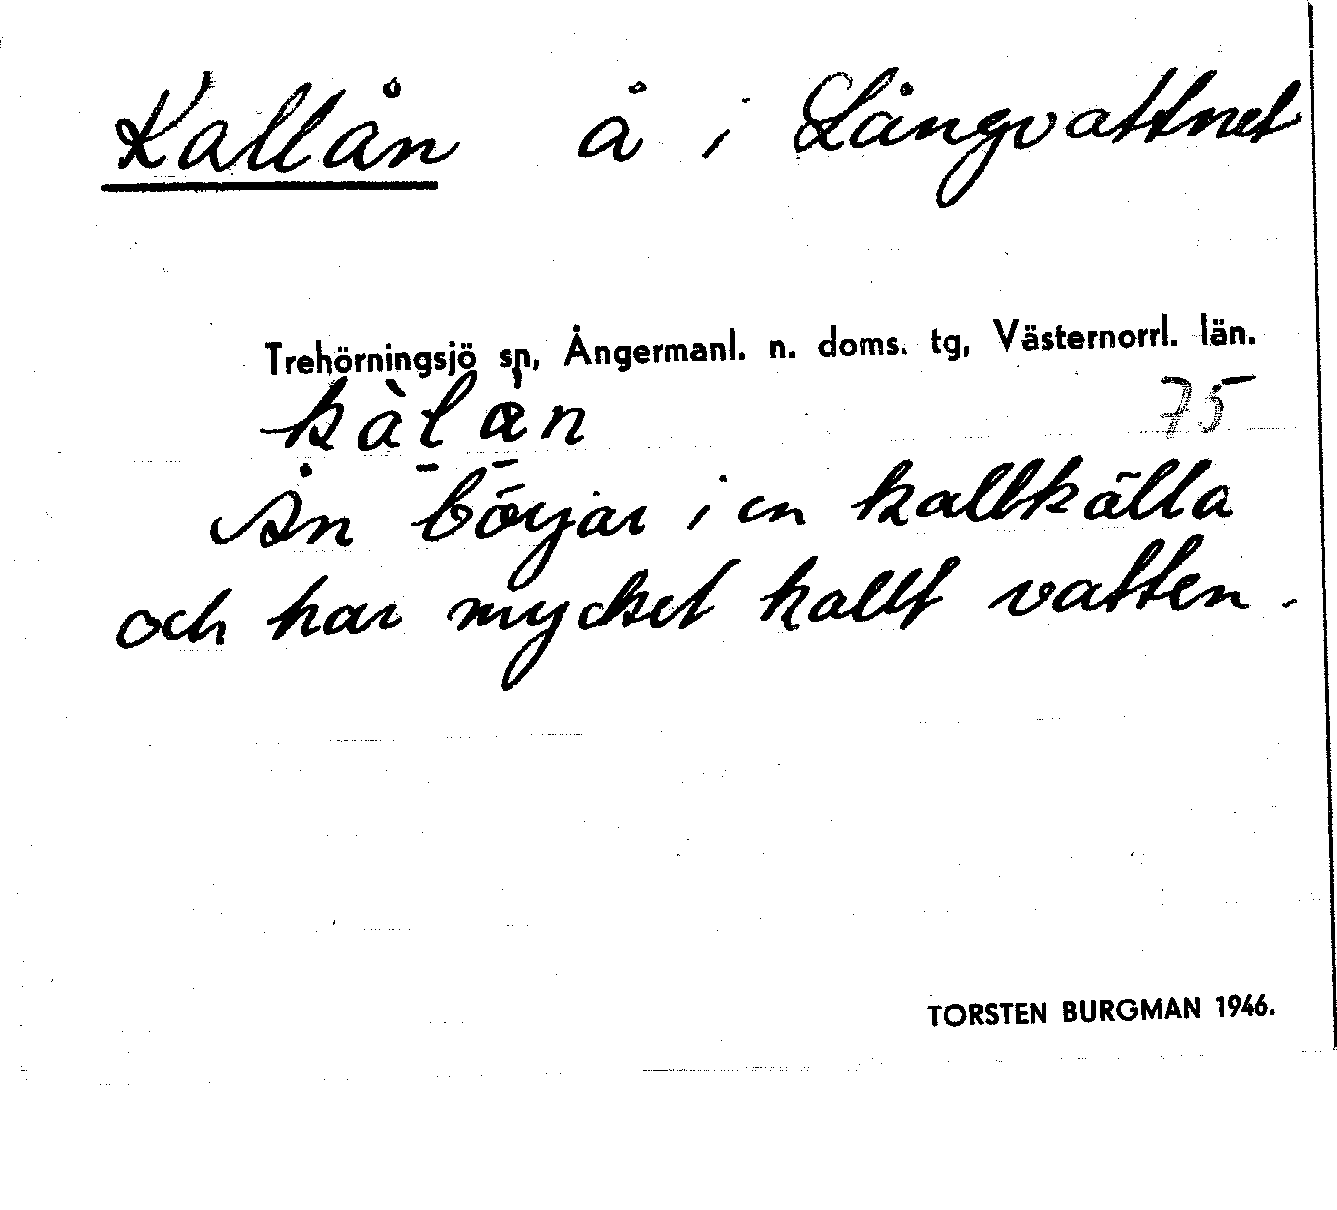 Kallån å i Långvattnet
Trehörningsjö sn, Ångermanl. n. doms. tg, Västernorrl. län.
kàl̲å̲n 75
Ån börjar i en kallkälla
och har mycket kallt vatten.
TORSTEN BURGMAN 1946.